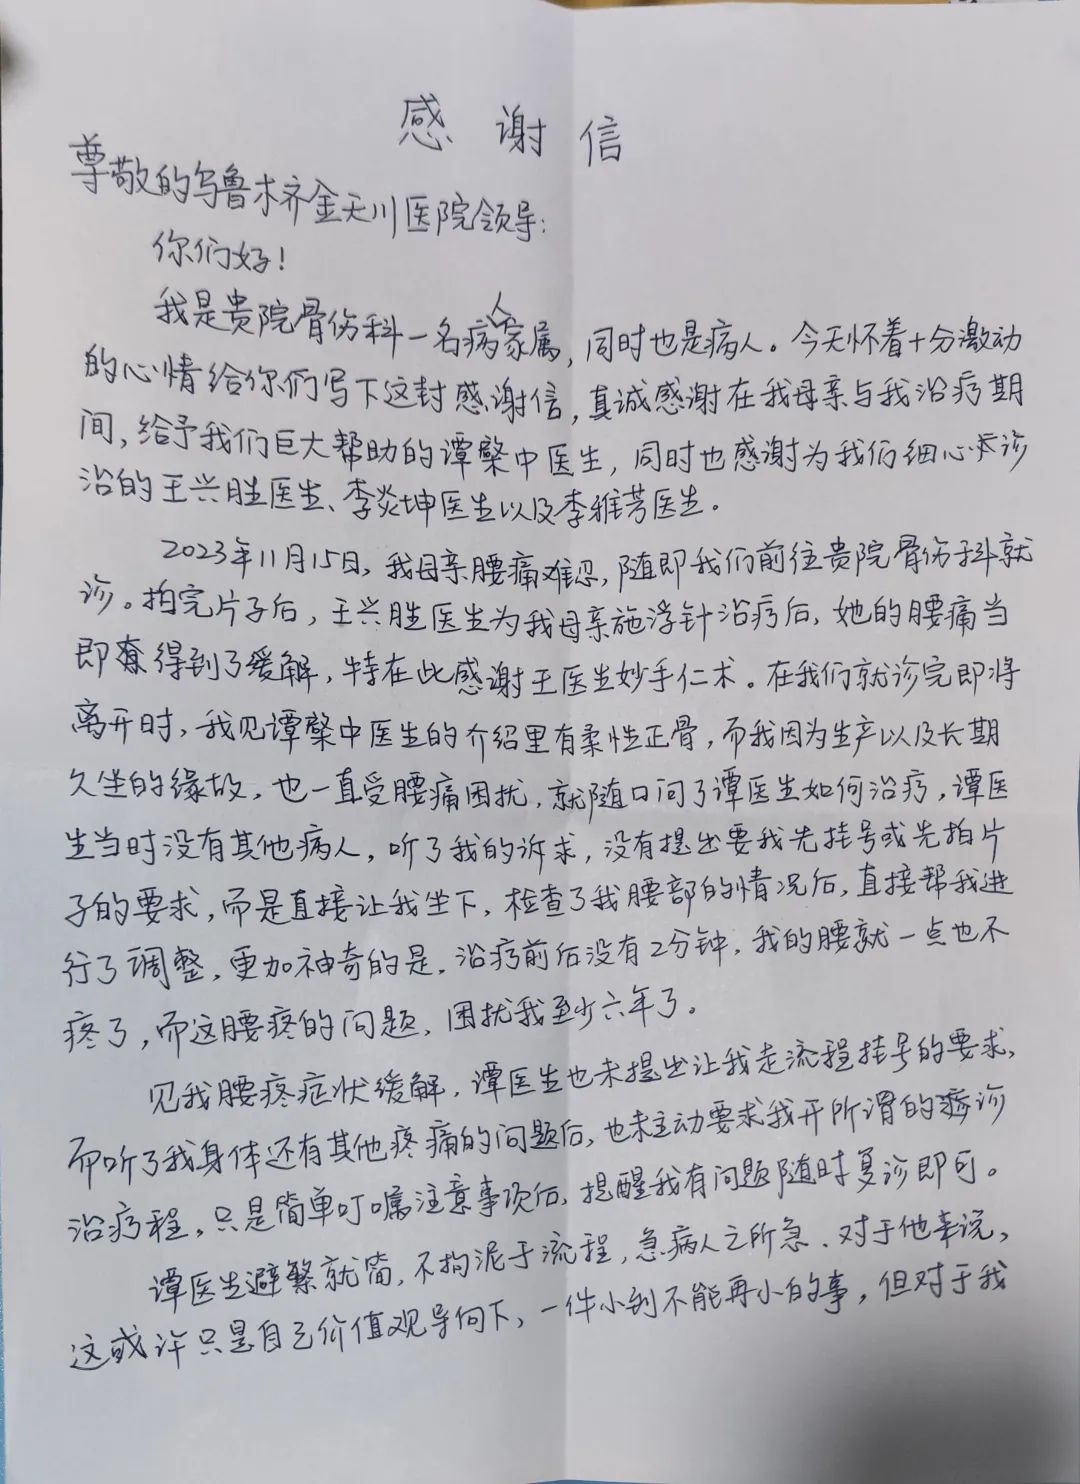 感谢信
尊敬的乌鲁木齐金天川医院领导:
你们好!
我是贵院骨伤科一名病人家属,同时也是病人。今天怀着十分激动
的心情给你们写下这封感谢信,真诚感谢在我母亲与我治疗期
间,给予我们巨大帮助的谭檠中医生,同时也感谢为我们细心诊
治的王兴胜医生、李炎坤医生以及李雅芳医生。
2023年11月15日,我母亲腰痛难忍,随即我们前往贵院骨伤科就
诊。拍完片子后,王兴胜医生为我母亲施浮针治疗后,她的腰痛当
即得到了缓解,特在此感谢王医生妙手仁术。在我们就诊完即将
离开时,我见谭檠中医生的介绍里有柔性正骨,而我因为生产以及长期
久坐的缘故,也一直受腰痛困扰,就随口问了谭医生如何治疗,谭医
生当时没有其他病人,听了我的诉求,没有提出要我先挂号或先拍片
子的要求,而是直接让我坐下,检查了我腰部的情况后,直接帮我进
行了调整,更加神奇的是,治疗前后没有2分钟,我的腰就一点也不
疼了,而这腰疼的问题,困扰我至少六年了。
见我腰疼症状缓解,谭医生也未提出让我走流程挂号的要求,
而听了我身体还有其他疼痛的问题后,也未主动要求我开所谓的诊
治疗程,只是简单叮嘱注意事项后,提醒我有问题随时复诊即可。
谭医生避繁就简,不拘泥于流程,急病人之所急,对于他来说,
这或许只是自己价值观导向下,一件小到不能再小的事,但对于我